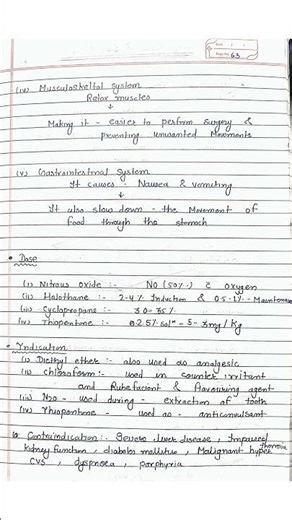 Page No. 63
(iv) Musculoskeltal system
Relax muscles
↓
Making it - easier to perform surgery &
preventing unwanted Movements
(v) Gastrointestinal System
It causes - Nausea & vomiting
↓
It also slow down - the Movement of
food through the stomach
• Dose
(i) Nitrous oxide :- No (50%) c̄ oxygen
(ii) Halothane :- 2-4% Induction & 0.5-1% - Maintenance
(iii) Cyclopropane :- 30-35%
(iv) Thiopentone :- 2.5% sol^n - 5-3mg/kg
• Indication
(i) Diethyl ether :- also used as analgesic
(ii) chloroform :- used in counter irritant
and Rubefacient & flavouring agent
(iii) N2O - used during - extraction of tooth
(iv) Thiopentone - used as - anticonvulsant
Contraindication :- Severe liver disease, Impaired
kidney function, diabetes mellitus, Malignant hyper thermia
CVS, dyspnoea, porphyria